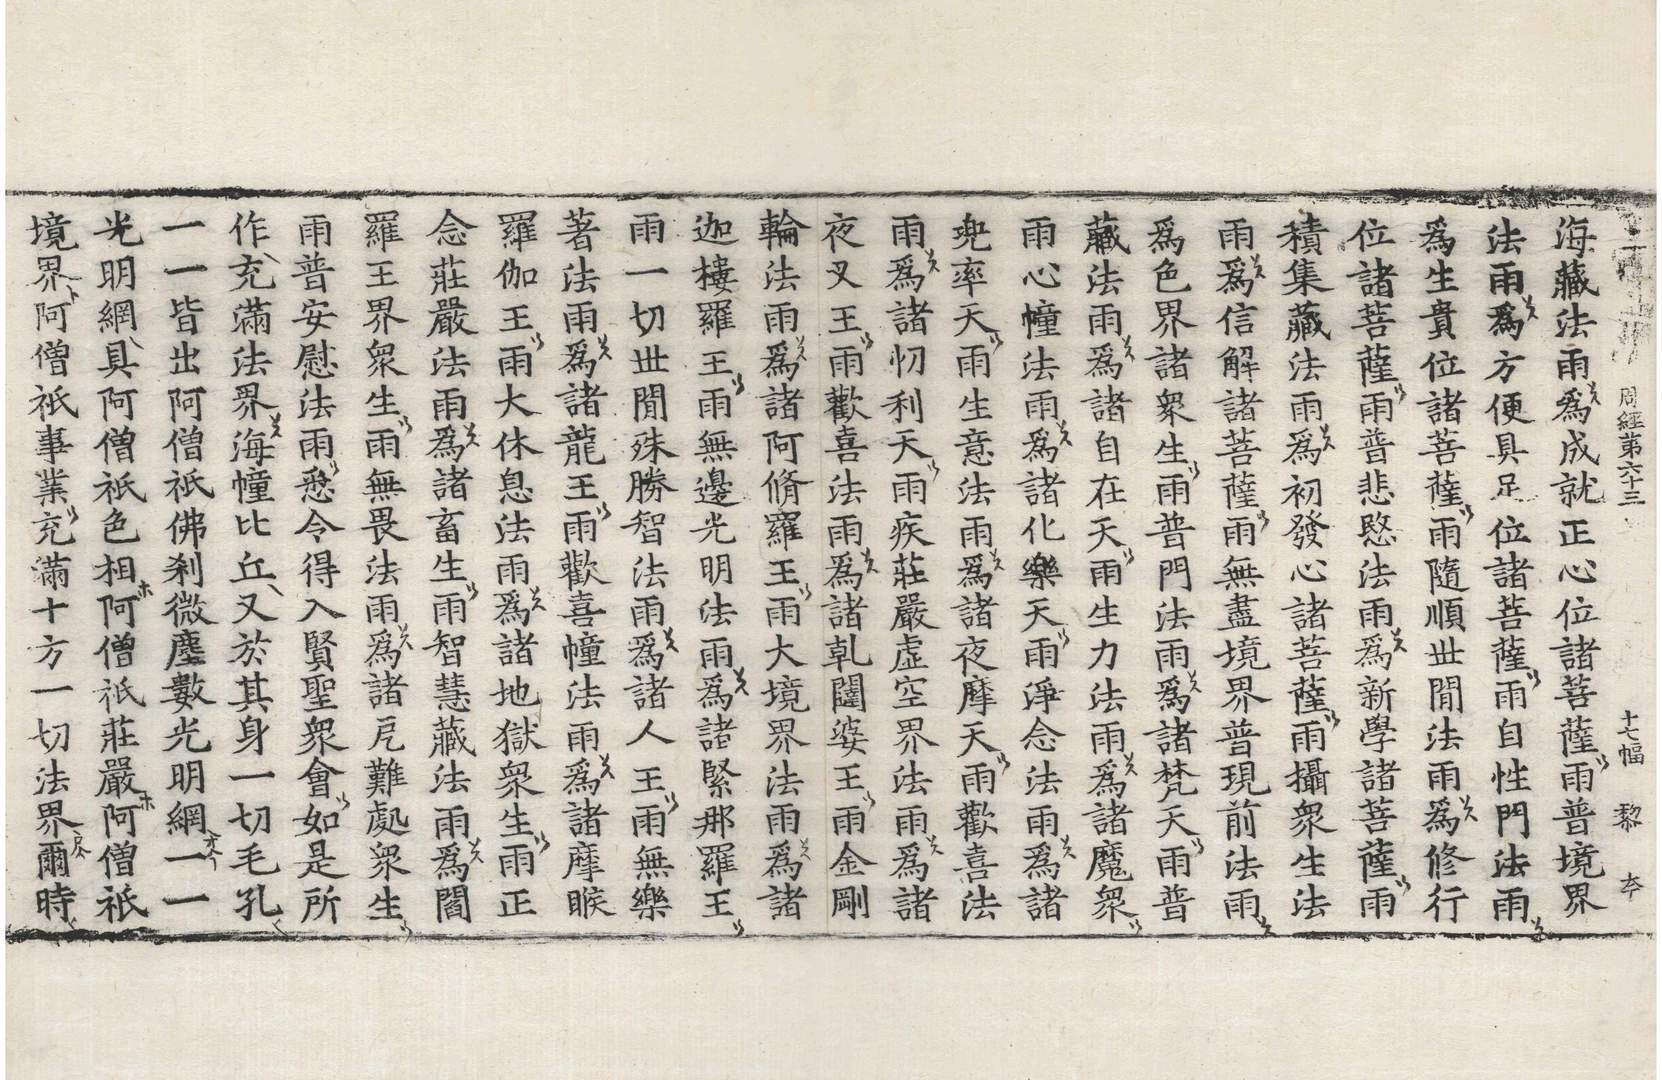 周經第六十三 十七幅 黎 本
海藏法雨爲成就正心位諸菩薩雨普境界
法雨爲方便具足位諸菩薩雨自性門法雨
爲生貴位諸菩薩雨隨順世閒法雨爲修行
位諸菩薩雨普悲愍法雨爲新學諸菩薩雨
積集藏法雨爲初發心諸菩薩雨攝衆生法
雨爲信解諸菩薩雨無盡境界普現前法雨
爲色界諸衆生雨普門法雨爲諸梵天雨普
藏法雨爲諸自在天雨生力法雨爲諸魔衆
雨心幢法雨爲諸化樂天雨淨念法雨爲諸
兜率天雨生意法雨爲諸夜摩天雨歡喜法
雨爲諸忉利天雨疾莊嚴虛空界法雨爲諸
夜叉王雨歡喜法雨爲諸乹闥婆王雨金剛
輪法雨爲諸阿脩羅王雨大境界法雨爲諸
迦樓羅王雨無邊光明法雨爲諸緊那羅王
雨一切世閒殊勝智法雨爲諸人王雨無樂
著法雨爲諸龍王雨歡喜幢法雨爲諸摩睺
羅伽王雨大休息法雨爲諸地獄衆生雨正
念莊嚴法雨爲諸畜生雨智慧藏法雨爲閻
羅王界衆生雨無畏法雨爲諸戹難處衆生
雨普安慰法雨悉令得入賢聖衆會如是所
作充滿法界海幢比丘又於其身一切毛孔
一一皆出阿僧祇佛剎微塵數光明網一一
光明網具阿僧祇色相阿僧祇莊嚴阿僧祇
境界阿僧祇事業充滿十方一切法界爾時